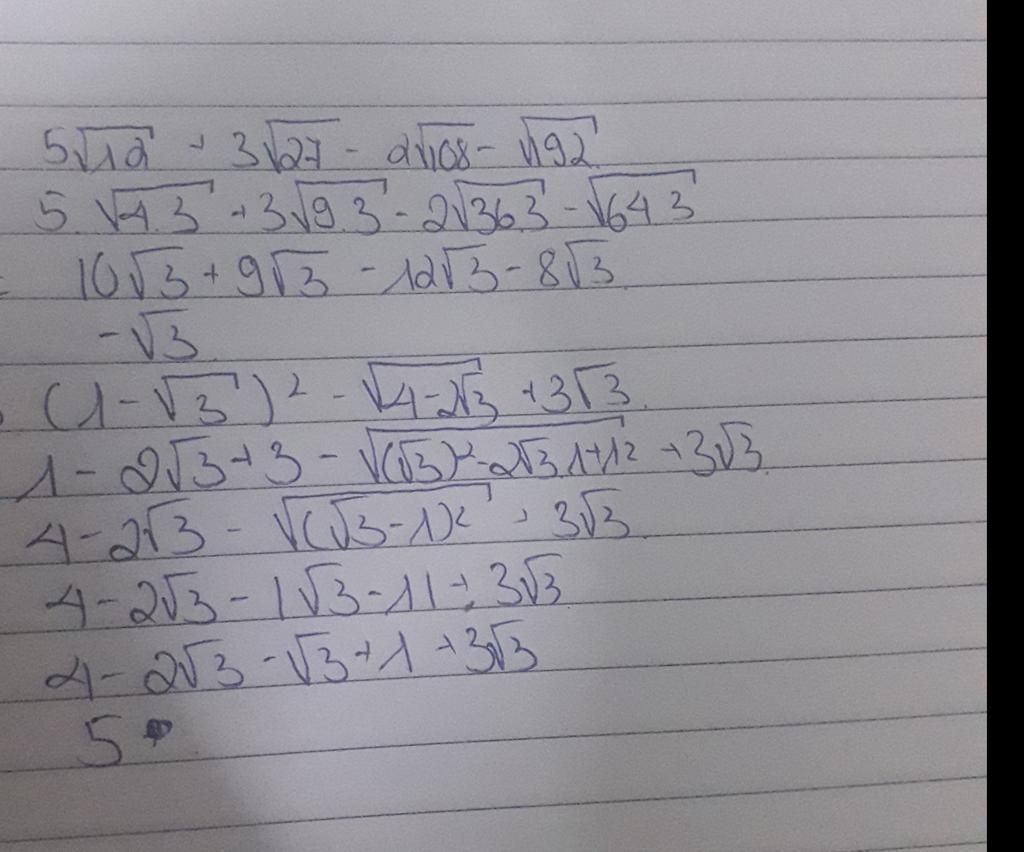 5√12 + 3√27 - 2√108 - √192
5.√4.3 + 3√9.3 - 2√36.3 - √64.3
= 10√3 + 9√3 - 12√3 - 8√3
-√3
(1-√3)² - √4-2√3 + 3√3
1 - 2√3 + 3 - √(√3)²-2√3.1+1² + 3√3
4 - 2√3 - √(√3-1)² + 3√3
4 - 2√3 - |√3-1| + 3√3
4 - 2√3 - √3 + 1 + 3√3
5